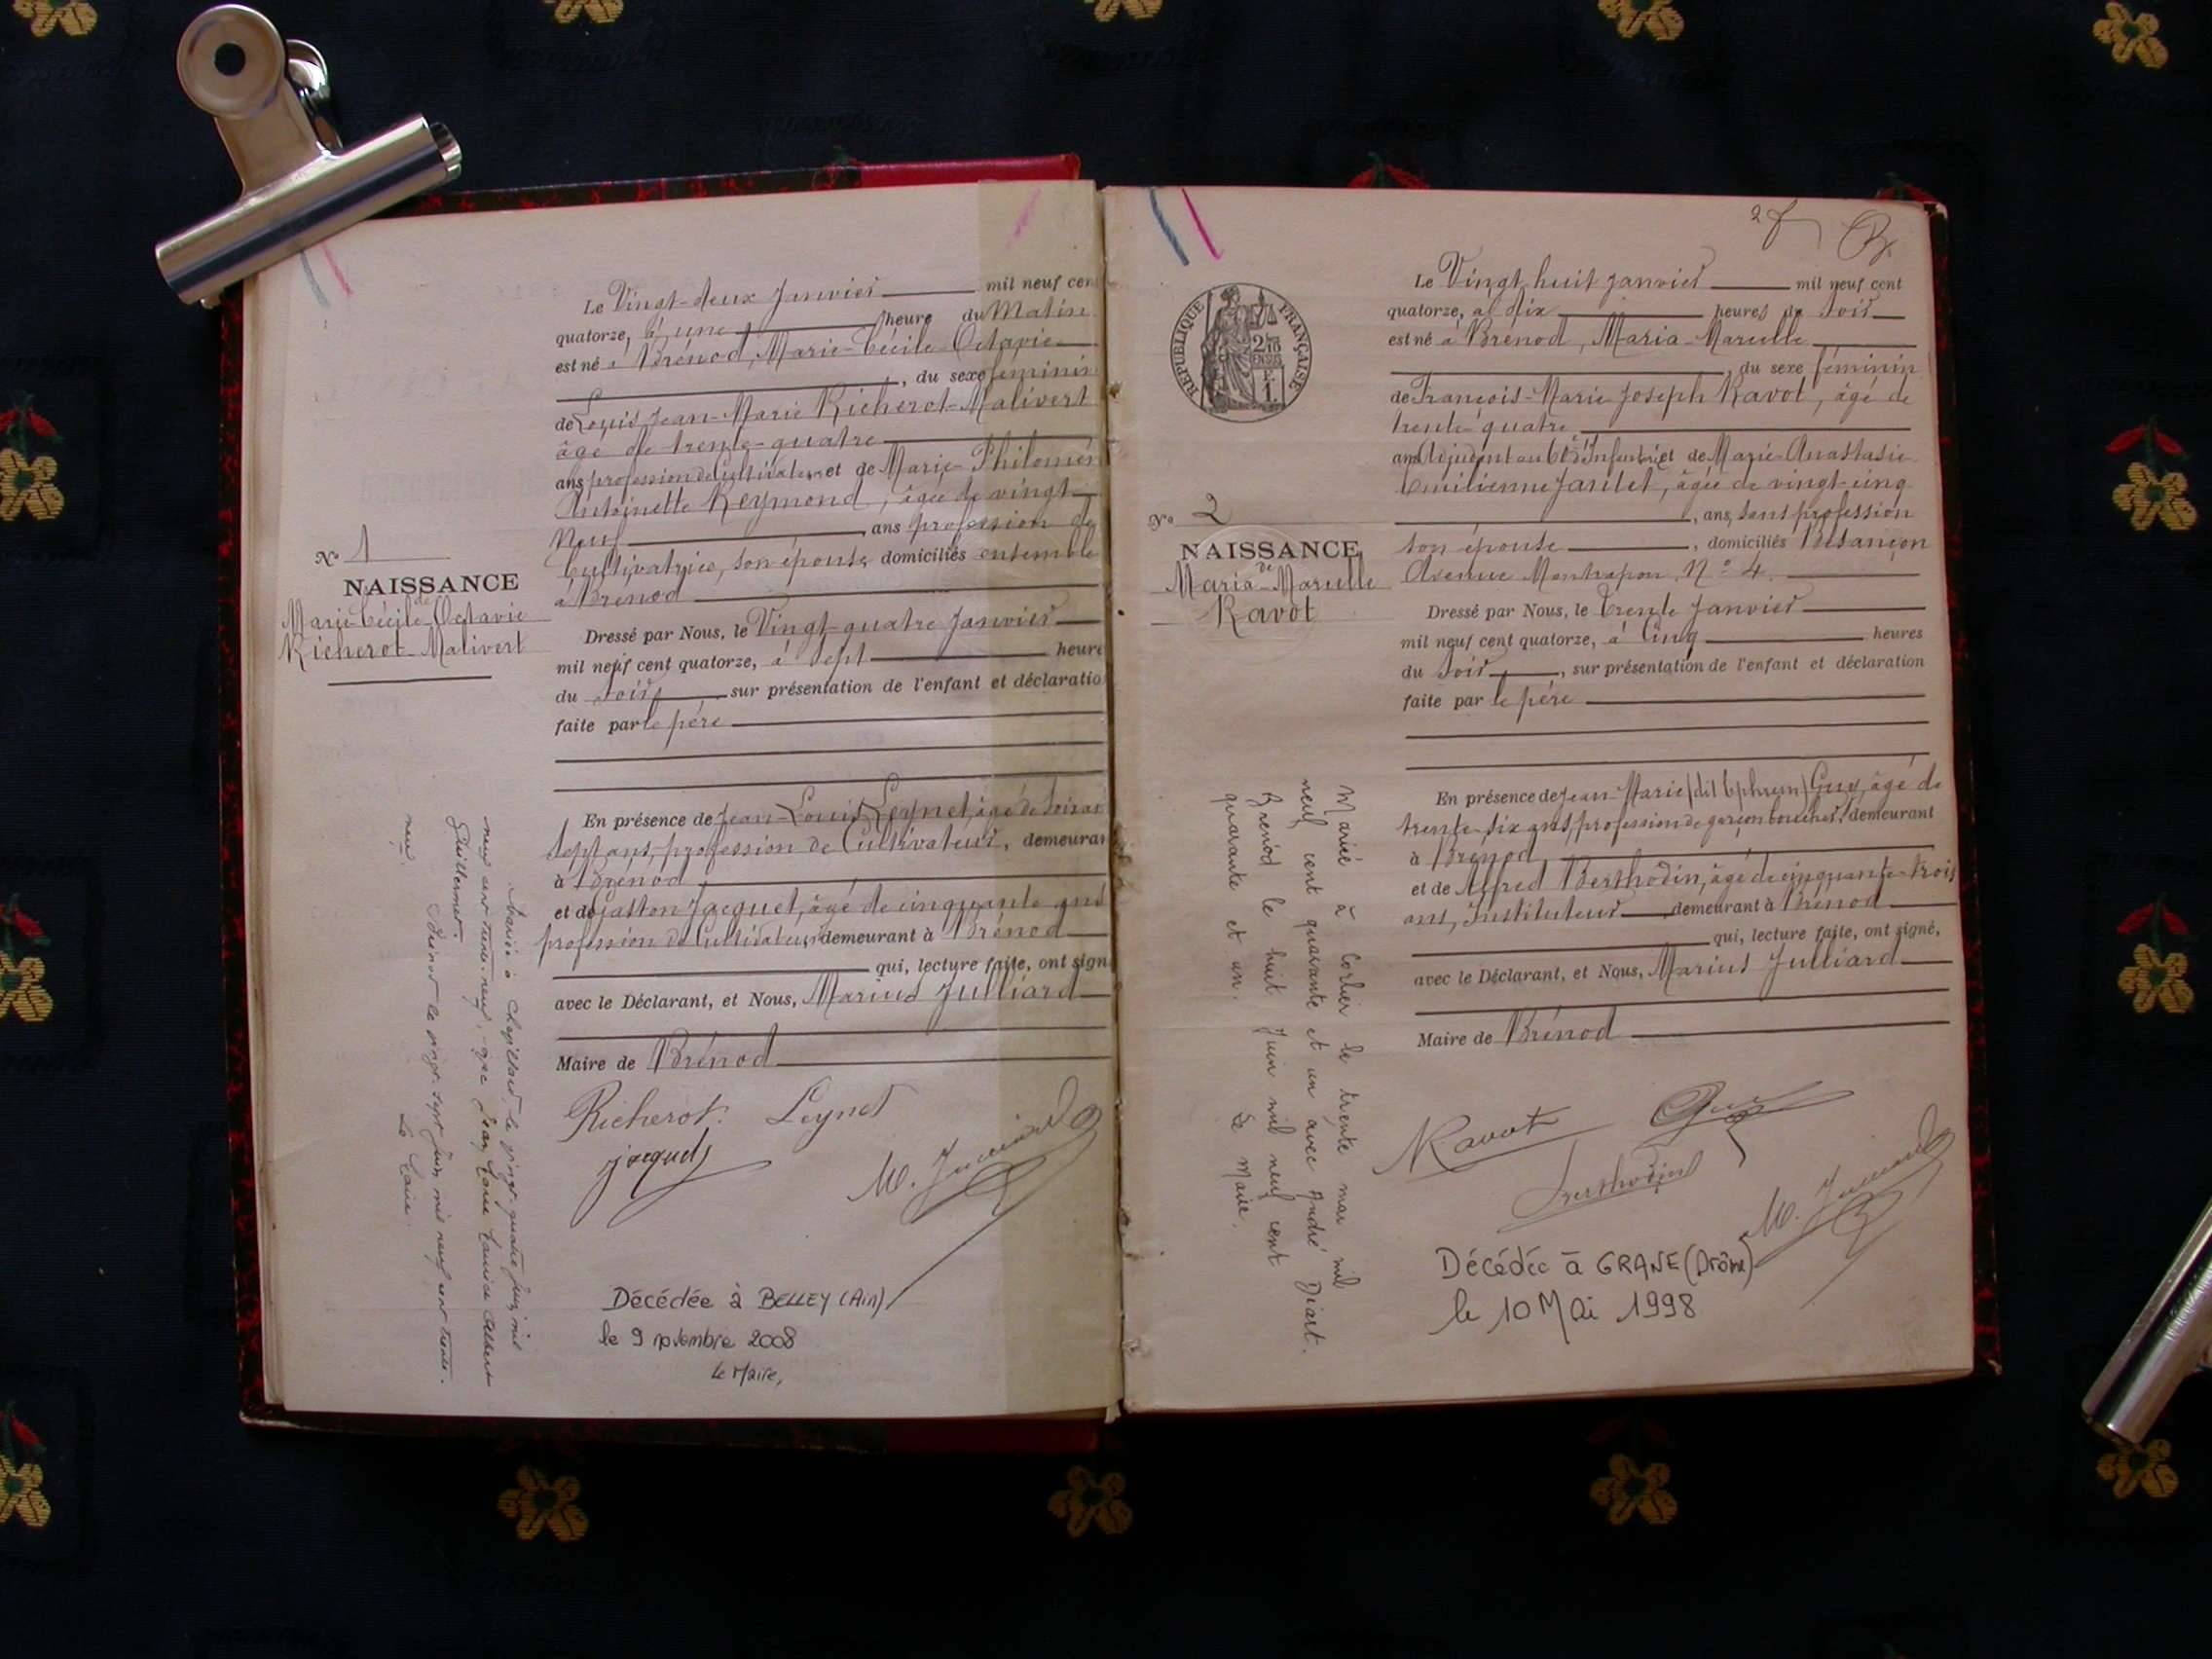 Le Vingt-deux Janvier mil neuf cen
quatorze, à une heure du Matin
est né à Brénod, Marie-Cécile Octavie
, du sexe féminin
de Louis Jean-Marie Richerot-Malivert
âgé de trente-quatre
ans profession de Cultivateur et de Marie-Philomèn
Antoinette Reymond, âgée de vingt
neuf ans profession de
Cultivatrice, son épouse domiciliés ensemble
à Brénod
Nº 1
NAISSANCE
de
Marie-Cécile-Octavie
Richerot-Malivert
Dressé par Nous, le Vingt-quatre Janvier
mil neuf cent quatorze, à sept heure
du soir, sur présentation de l'enfant et déclaratio
faite par le père
En présence de Jean-Louis Leynet, âgé de soixan
sept ans, profession de Cultivateur, demeuran
à Brénod
et de Gaston Jacquet, âgé de cinquante ans
profession de Cultivateur demeurant à Brénod
qui, lecture faite, ont sign
avec le Déclarant, et Nous, Marius Julliard
Maire de Brénod
Richerot Leynet
Jacquet M. Julliard
Mariée à le vingt-quatre juin mil
neuf cent trente-neuf, avec Jean Marie Maurice Albert
Guillermet.
Brénod le vingt-sept juin mil neuf cent trente-
neuf. Le Maire.
Décédée à BELLEY (Ain)
le 9 novembre 2008
Le Maire,
2
RÉPUBLIQUE FRANÇAISE
Le Vingt huit Janvier mil neuf cent
quatorze, à dix heures du soir
est né à Brénod, Maria-Marcelle
, du sexe féminin
de François-Marie Joseph Ravot, âgé de
trente-quatre
ans Adjudant au 60e d'Infanterie et de Marie-Anastasie
Emilienne, âgée de vingt-cinq
, ans, sans profession
son épouse, domiciliés Besançon
Avenue Montrapon, Nº 4.
Nº 2
NAISSANCE
de
Maria-Marcelle
Ravot
Dressé par Nous, le trente Janvier
mil neuf cent quatorze, à cinq heures
du soir, sur présentation de l'enfant et déclaration
faite par le père
En présence de Jean-Marie (dit Ephrem) Guy, âgé de
trente-six ans, profession de garçon boucher, demeurant
à Brénod
et de Alfred Berthodin, âgé de cinquante-trois
ans, Instituteur demeurant à Brénod
qui, lecture faite, ont signé,
avec le Déclarant, et Nous, Marius Julliard
Maire de Brénod
Ravot Guy
Berthodin
M. Julliard
Mariée à Corlier le trente mai mil
neuf cent quarante et un avec André Djart.
Brénod le huit Juin mil neuf cent
quarante et un. Le Maire.
Décédée à GRANE (Drôme)
le 10 Mai 1998